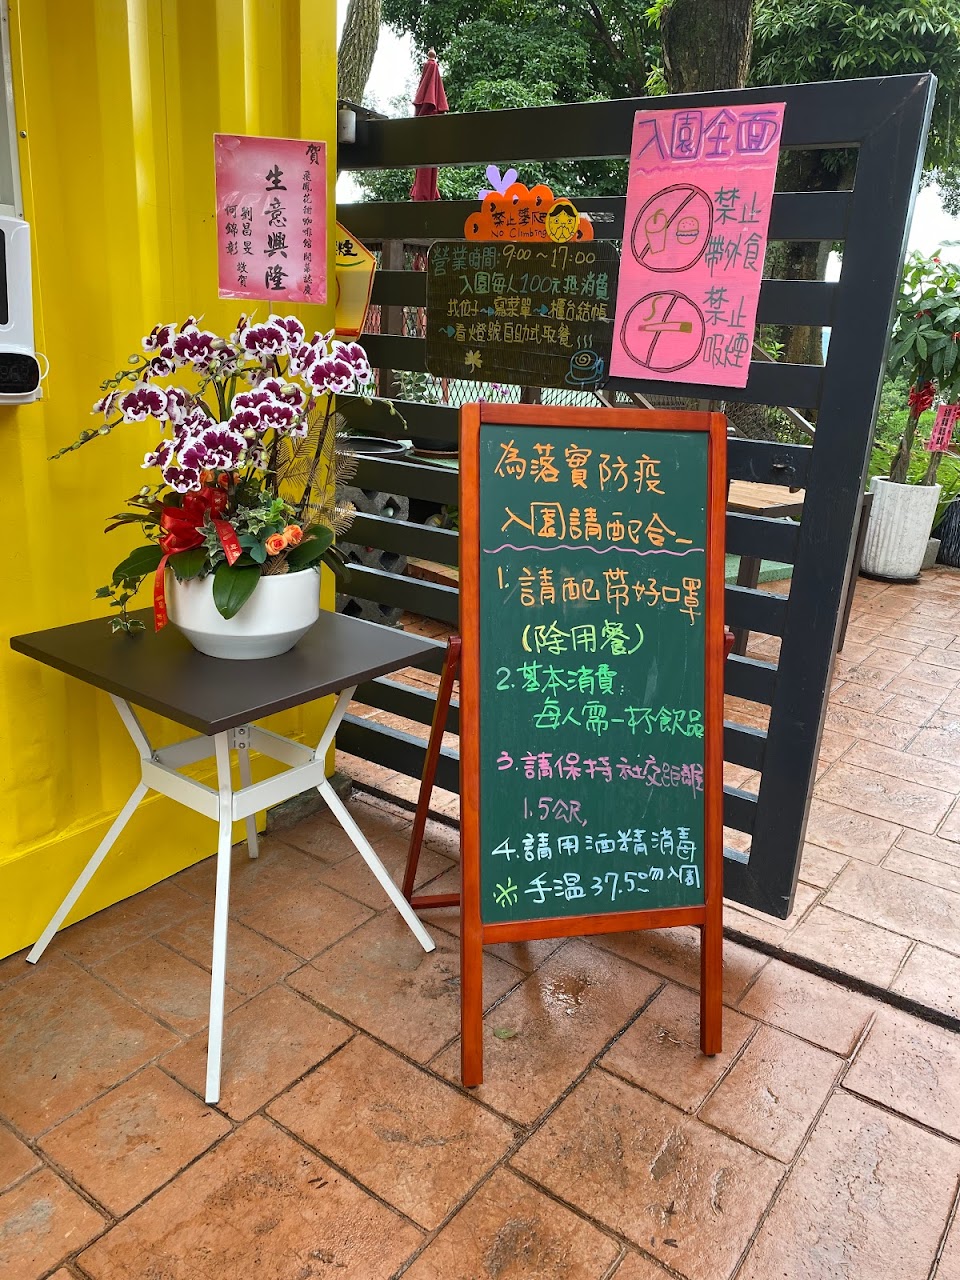 賀
鳳花甜咖啡館開幕誌慶
生意興隆
劉昌旻
何錦彰
敬賀
煙
禁止攀爬
No Climbing
營業時間:9:00～17:00
入園每人100元抵消費
找位子→寫菜單→櫃台結帳
→看燈號自助式取餐
入園全面
禁止
帶外食
禁止
吸煙
為落實防疫
入園請配合_
1.請配帶好口罩
(除用餐)
2.基本消費:
每人需一杯飲品
3.請保持社交距離
1.5公尺,
4.請用酒精消毒
※手溫37.5℃勿入園